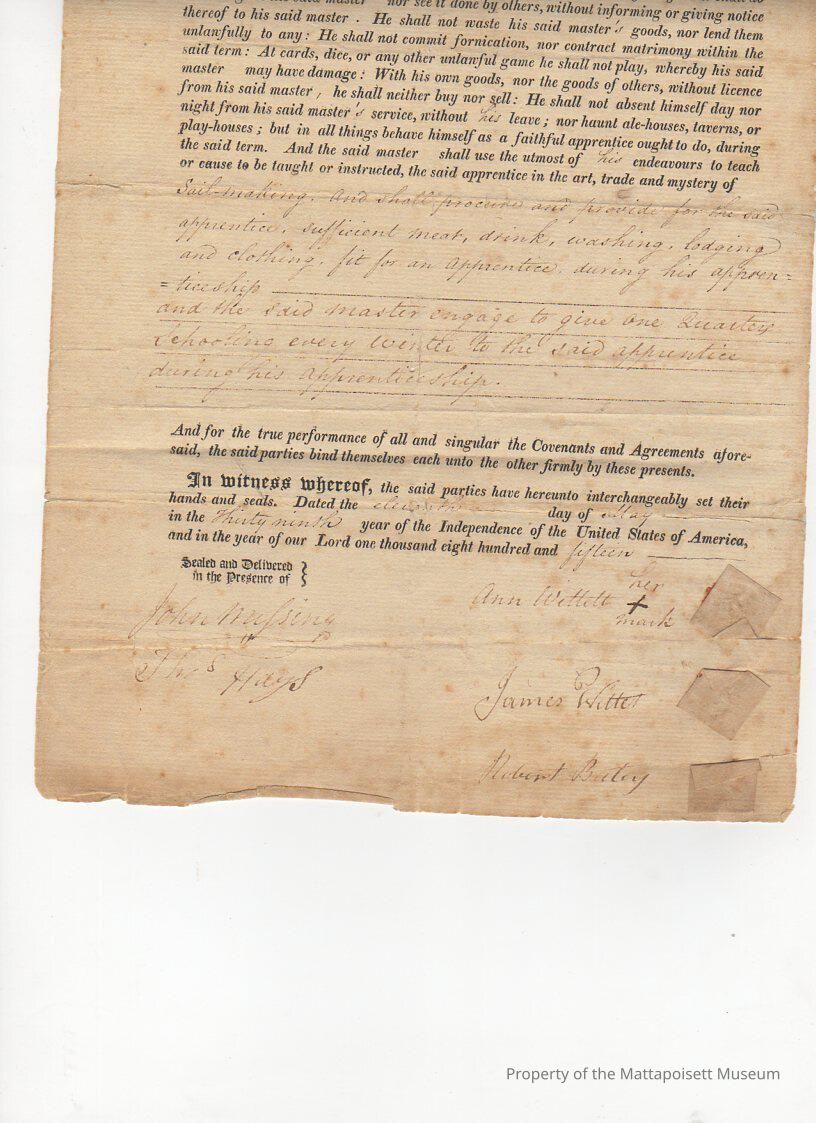 nor see it done by others, without informing or giving notice
thereof to his said master. He shall not waste his said master's goods, nor lend them
unlawfully to any: He shall not commit fornication, nor contract matrimony within the
said term: At cards, dice, or any other unlawful game he shall not play, whereby his said
master may have damage: With his own goods, nor the goods of others, without licence
from his said master, he shall neither buy nor sell: He shall not absent himself day nor
night from his said master's service, without his leave; nor haunt ale-houses, taverns, or
play-houses; but in all things behave himself as a faithful apprentice ought to do, during
the said term. And the said master shall use the utmost of his endeavours to teach
or cause to be taught or instructed, the said apprentice in the art, trade and mystery of
Sail-making. And shall procure and provide for the said
apprentice, sufficient meat, drink, washing, lodging
and clothing, fit for an apprentice, during his appren=
=ticeship
and the said master engage to give one Quarters
Schooling every Winter to the said apprentice
during his apprenticeship.
And for the true performance of all and singular the Covenants and Agreements afore-
said, the said parties bind themselves each unto the other firmly by these presents.
In witness whereof, the said parties have hereunto interchangeably set their
hands and seals. Dated the eleventh day of May
in the Thirty ninth year of the Independence of the United States of America,
and in the year of our Lord one thousand eight hundred and fifteen
Sealed and Delivered
in the Presence of
her
Ann Wittett +
mark
John
Thos Hays
James Wittet
Robert
Property of the Mattapoisett Museum